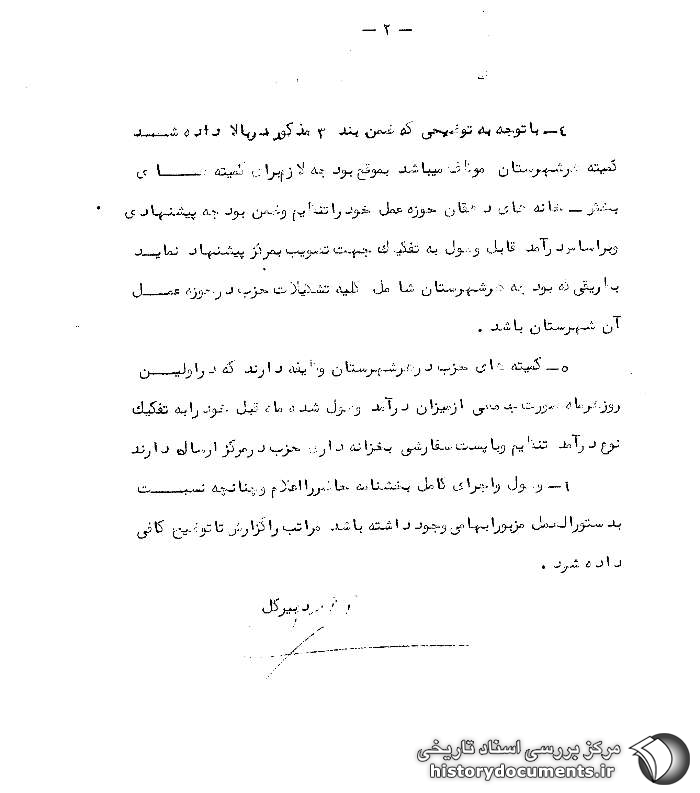 — ۲ —
۴ــ باتوجه به توضیحی که ضمن بند ۳ مذکور دربالا داده شـــد
کمیته هرشهرستان موظف میباشد بموقع بود جه لازم برای کمیته هـــا ی
بخش ــ خانه های دهقان حوزه عمل خود راتنظیم وضمن بود جه پیشنهادی
وبراساس درآمد قابل وصول به تفکیک جهت تصویب بمرکز پیشنهاد نماید
بطریقی که بود جه هرشهرستان شا مل کلیه تشکیلات حزب درحوزه عمـــل
آن شهرستان باشد .
۵ــ کمیته های حزب درهرشهرستان وظیفه دارند که دراولیـــن
روزهرماه صورت جامعی ازمیزان درآمد وصول شده ماه قبل خود رابه تفکیک
نوع درآمد تنظیم وباپست سفارشی بخزانه داری حزب درمرکز ارسال دارند
۶ــ وصول واجرای کامل بخشنامه حاضررااعلام وچنانچه نسبـــت
بدستورالعمل مزبورابهامی وجود داشته باشد مراتب راگزارش تاتوضیح کافی
داده شود .
دبیرکل
مرکز بررسی اسناد تاریخی
historydocuments.ir